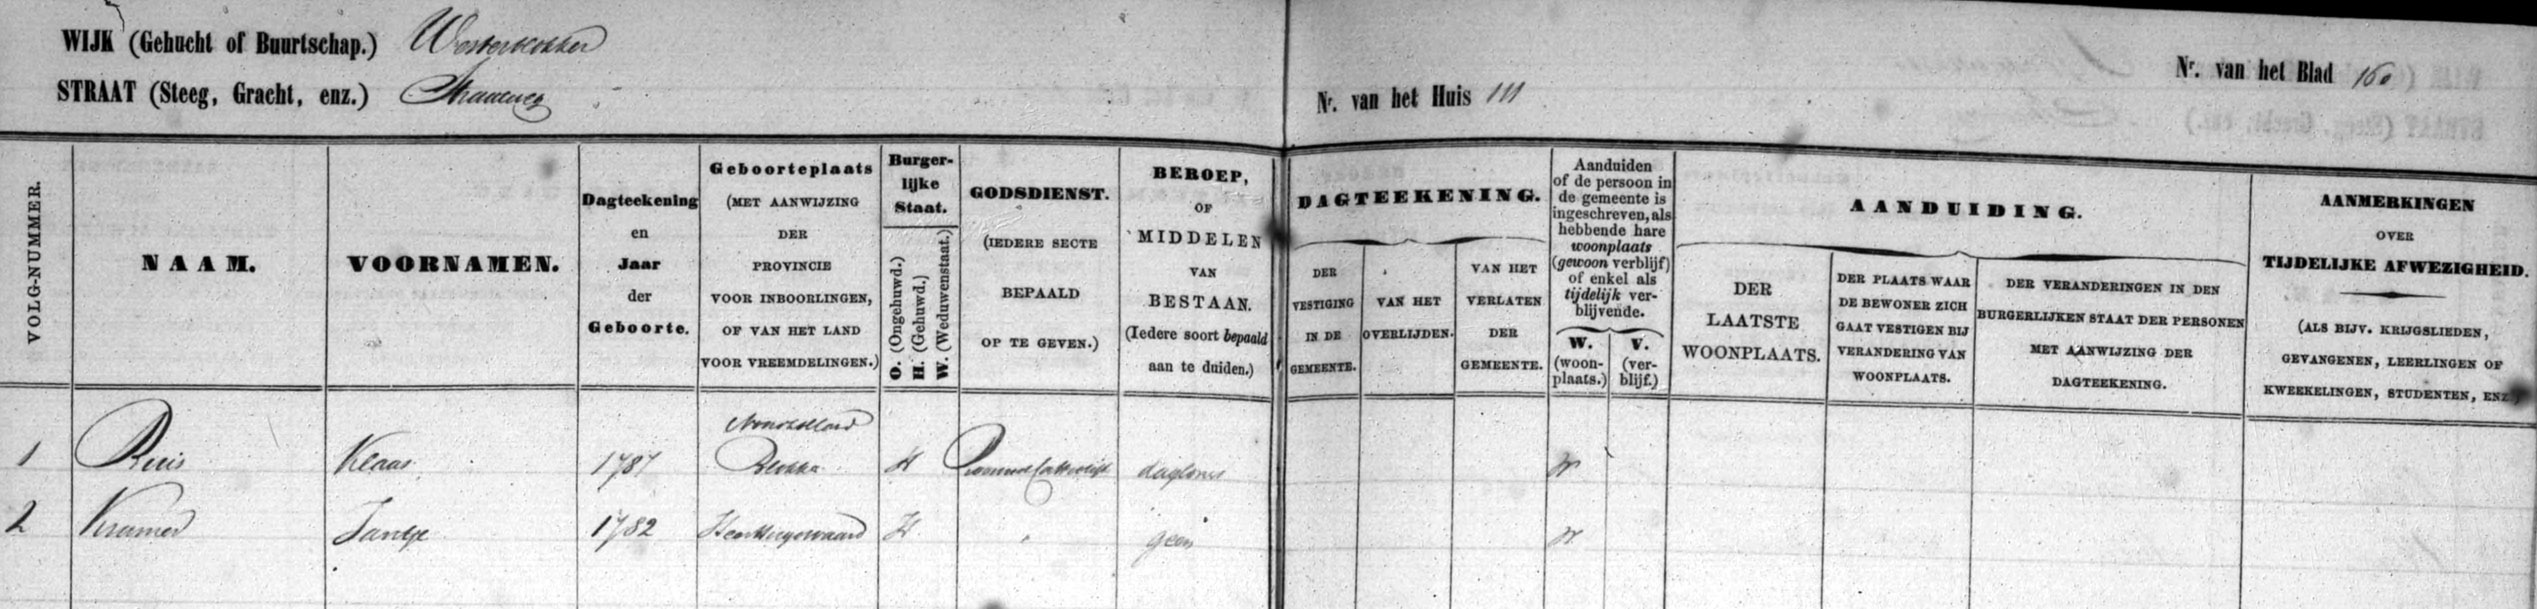 WIJK (Gehucht of Buurtschap.) Westerblokker
STRAAT (Steeg, Gracht, enz.) Straatweg
Nr. van het Huis 111
Nr. van het Blad 160
VOLG-NUMMER.
NAAM.
VOORNAMEN.
Dagteekening
en
Jaar
der
Geboorte.
Geboorteplaats
(MET AANWIJZING
DER
PROVINCIE
VOOR INBOORLINGEN,
OF VAN HET LAND
VOOR VREEMDELINGEN.)
Burger-
lijke
Staat.
O. (Ongehuwd.)
H. (Gehuwd.)
W. (Weduwenstaat.)
GODSDIENST.
(IEDERE SECTE
BEPAALD
OP TE GEVEN.)
BEROEP,
OF
MIDDELEN
VAN
BESTAAN.
(Iedere soort bepaald
aan te duiden.)
DAGTEEKENING.
DER
VESTIGING
IN DE
GEMEENTE.
VAN HET
OVERLIJDEN.
VAN HET
VERLATEN
DER
GEMEENTE.
Aanduiden
of de persoon in
de gemeente is
ingeschreven, als
hebbende hare
woonplaats
(gewoon verblijf)
of enkel als
tijdelijk ver-
blijvende.
W.
(woon-
plaats.)
V.
(ver-
blijf.)
AANDUIDING.
DER
LAATSTE
WOONPLAATS.
DER PLAATS WAAR
DE BEWONER ZICH
GAAT VESTIGEN BIJ
VERANDERING VAN
WOONPLAATS.
DER VERANDERINGEN IN DEN
BURGERLIJKEN STAAT DER PERSONEN
MET AANWIJZING DER
DAGTEEKENING.
AANMERKINGEN
OVER
TIJDELIJKE AFWEZIGHEID.
(ALS BIJV. KRIJGSLIEDEN,
GEVANGENEN, LEERLINGEN OF
KWEEKELINGEN, STUDENTEN, ENZ.)
Noordholland
1 Ruis Klaas 1787 Blokker H Roomsch Catholijk daglooner W
2 Kramer Jantje 1782 Heerhugowaard H " geen W